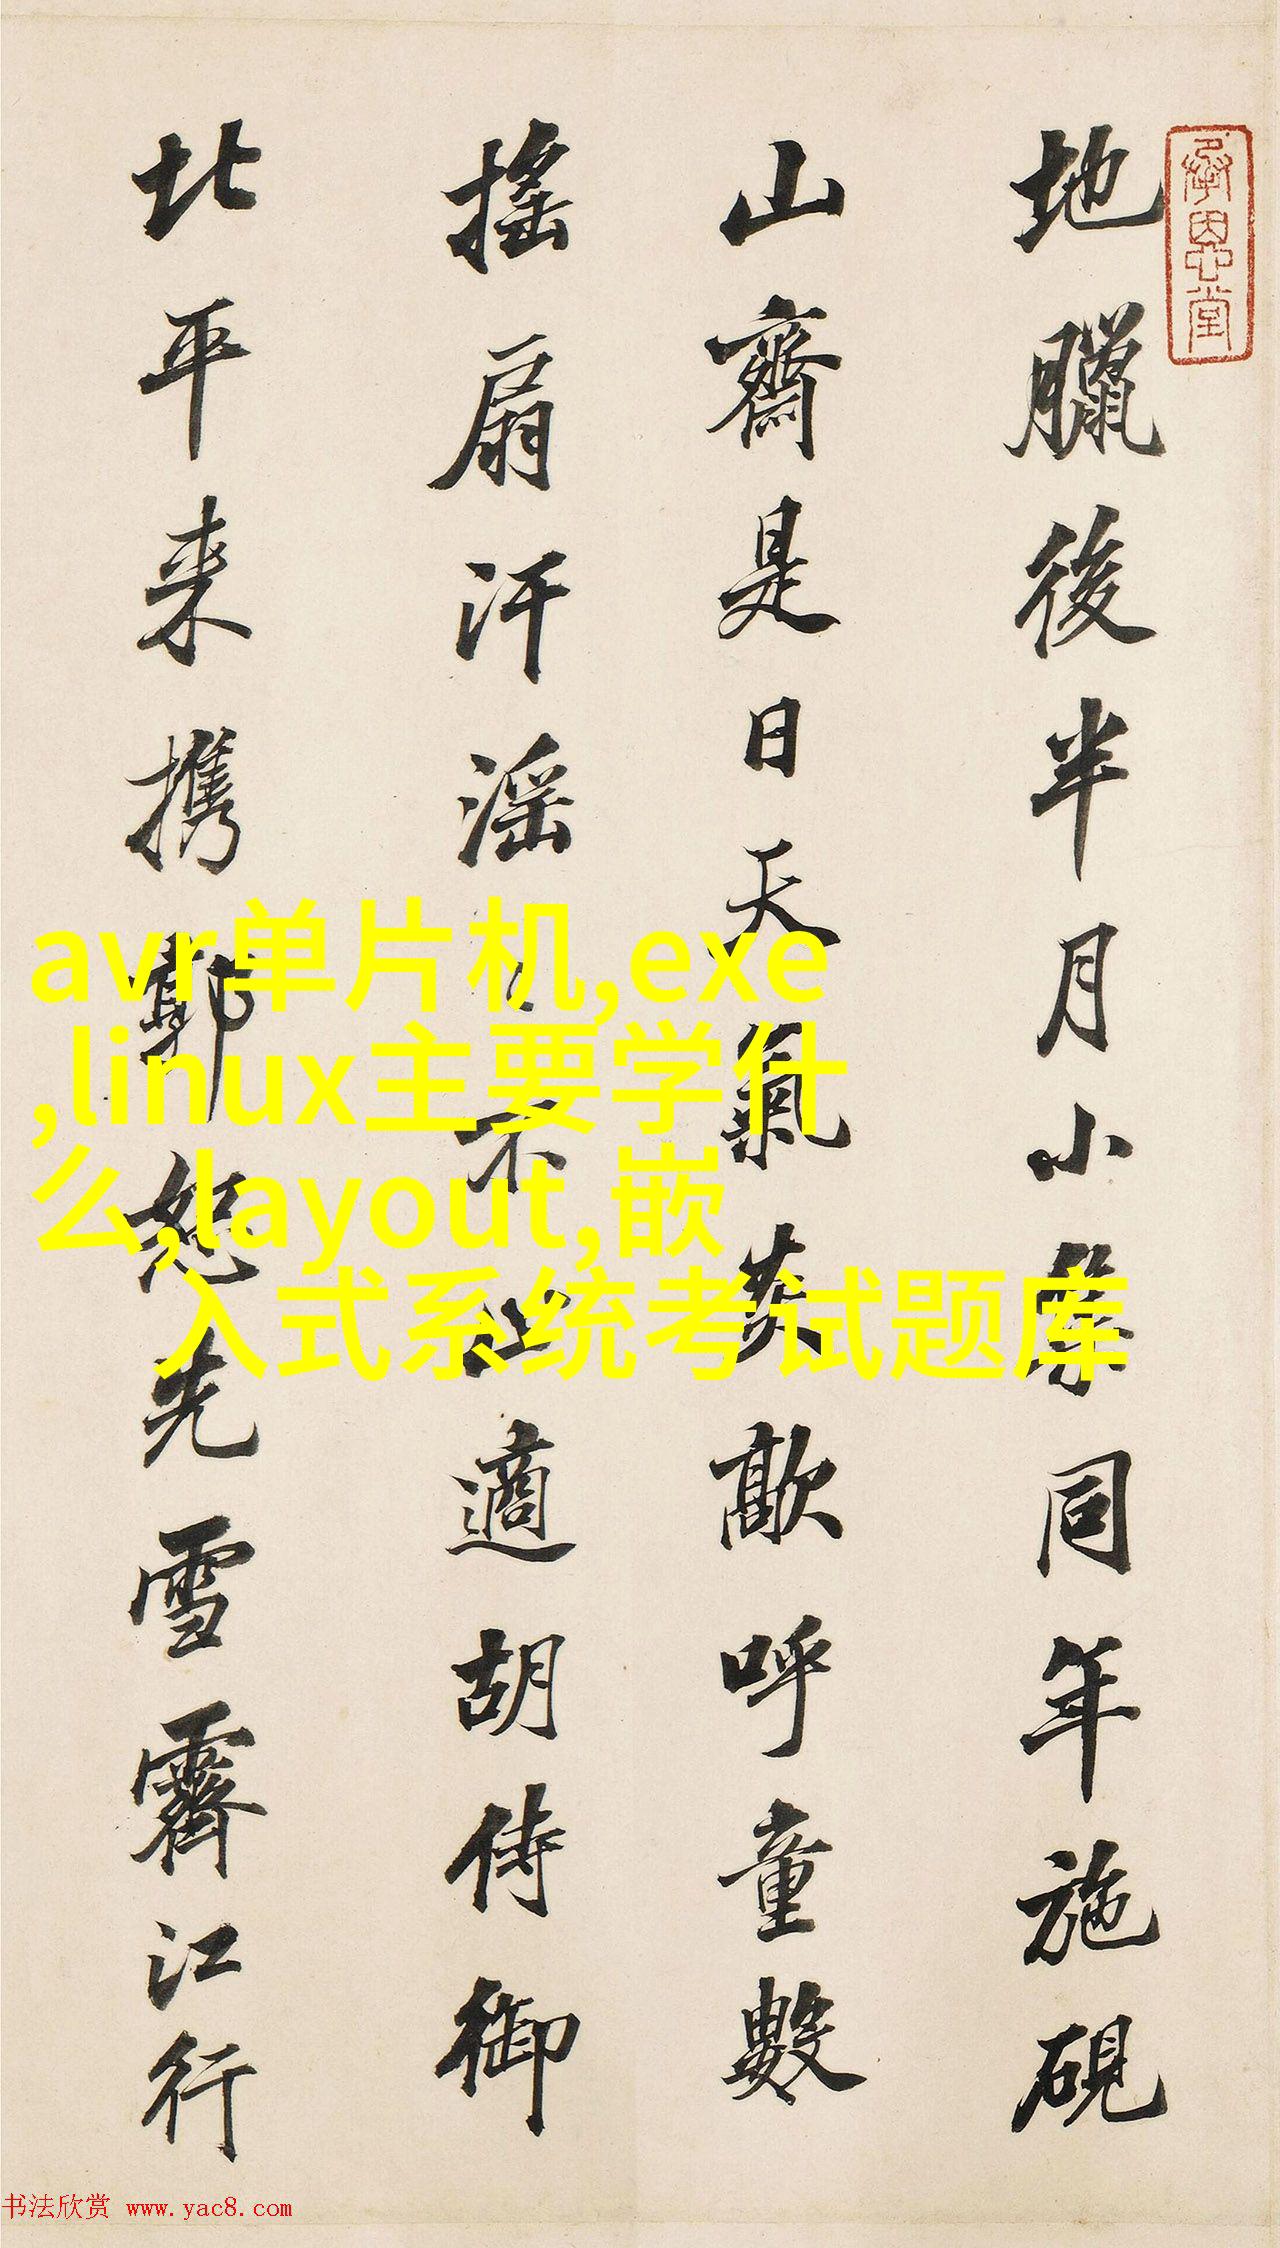 承恩堂
地臘後半月小集同年施硯
山齋是日天氣炎歊呼童數
搖扇汗淫〻不止適胡侍御
北平来攜郭恕先雪霽江行
avr单片机,exe
,linux主要学什
么,layout,嵌
入式系统考试题库
书法欣赏 www.yac8.com